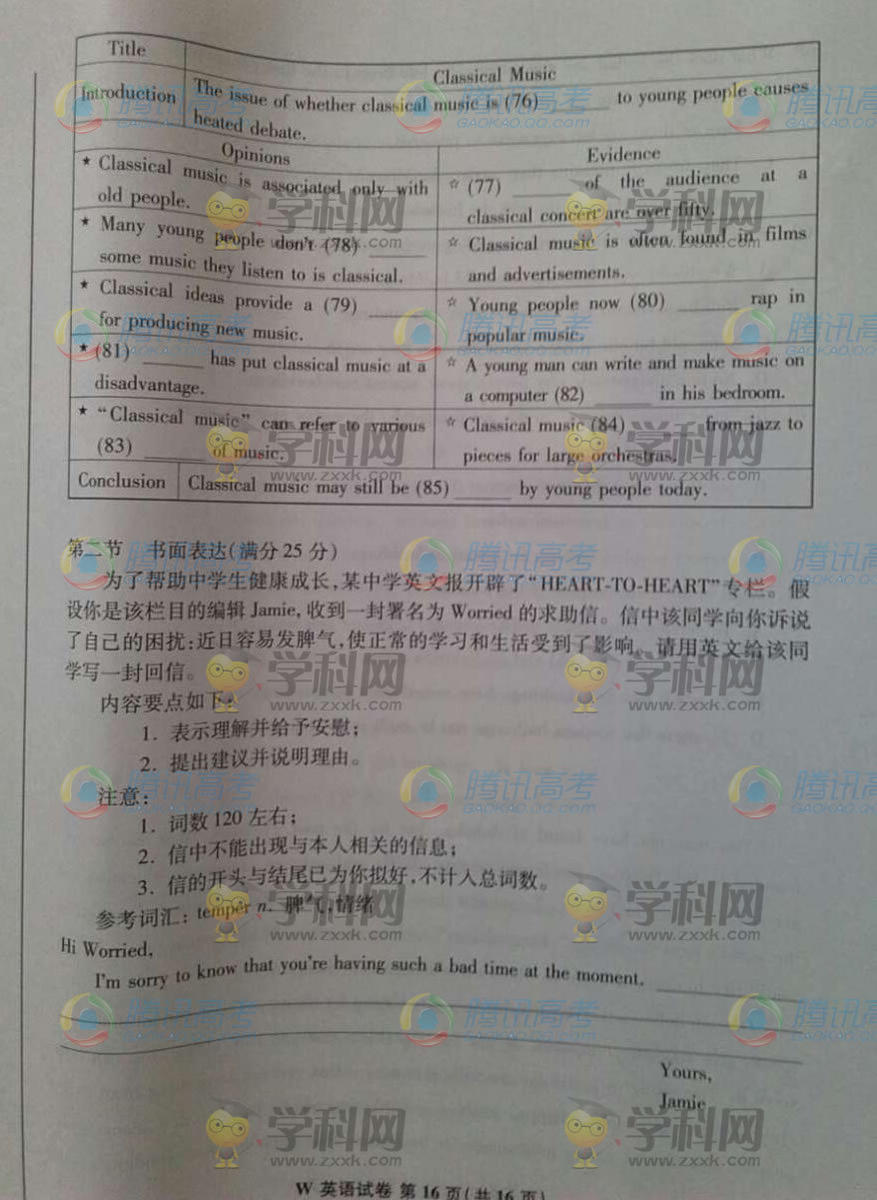 Title
Classical Music
Introduction
The issue of whether classical music is (76) ______ to young people causes
heated debate.
Opinions
Evidence
★ Classical music is associated only with
old people.
☆ (77) ______ of the audience at a
classical concert are over fifty.
★ Many young people don't (78) ______
some music they listen to is classical.
☆ Classical music is often found in films
and advertisements.
★ Classical ideas provide a (79) ______
for producing new music.
☆ Young people now (80) ______ rap in
popular music.
★ (81) ______ has put classical music at a
disadvantage.
☆ A young man can write and make music on
a computer (82) ______ in his bedroom.
★ "Classical music" can refer to various
(83) ______ of music.
☆ Classical music (84) ______ from jazz to
pieces for large orchestras.
Conclusion
Classical music may still be (85) ______ by young people today.
第二节 书面表达(满分25分)
为了帮助中学生健康成长,某中学英文报开辟了"HEART-TO-HEART"专栏。假
设你是该栏目的编辑Jamie,收到一封署名为Worried的求助信。信中该同学向你诉说
了自己的困扰:近日容易发脾气,使正常的学习和生活受到了影响。请用英文给该同
学写一封回信。
内容要点如下:
1. 表示理解并给予安慰;
2. 提出建议并说明理由。
注意:
1. 词数120左右;
2. 信中不能出现与本人相关的信息;
3. 信的开头与结尾已为你拟好,不计入总词数。
参考词汇: temper n. 脾气,情绪
Hi Worried,
I'm sorry to know that you're having such a bad time at the moment. ______
Yours,
Jamie
W 英语试卷 第16页(共16页)
学科网
www.zxxk.com
腾讯高考
GAOKAO.QQ.com